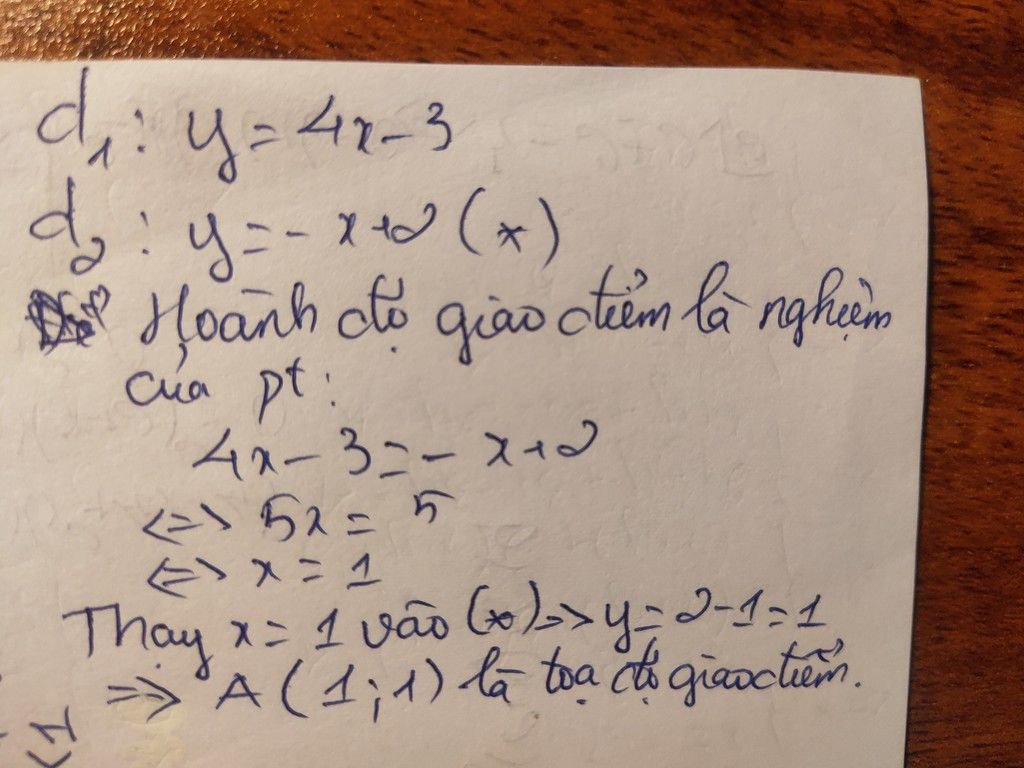 d₁: y = 4x - 3
d₂: y = - x + 2 (*)
Hoành độ giao điểm là nghiệm
của pt:
4x - 3 = - x + 2
<=> 5x = 5
<=> x = 1
Thay x = 1 vào (*) => y = 2 - 1 = 1
=> A (1; 1) là toạ độ giao điểm.